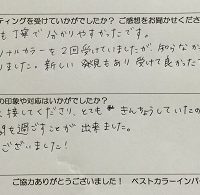 ティングを受けていかがでしたか？ ご感想をお聞かせくださ
も丁寧で分かりやすかったです。
ナルカラーを2回受けていましたが、知らなか
ました。新しい発見もあり受けて良かった
の印象や対応はいかがでしたか？
接してくださり、とても きんちょうしていたの
間を過ごすことが出来ました。
ございました！
ご協力ありがとうございました！ ベストカラーインバー